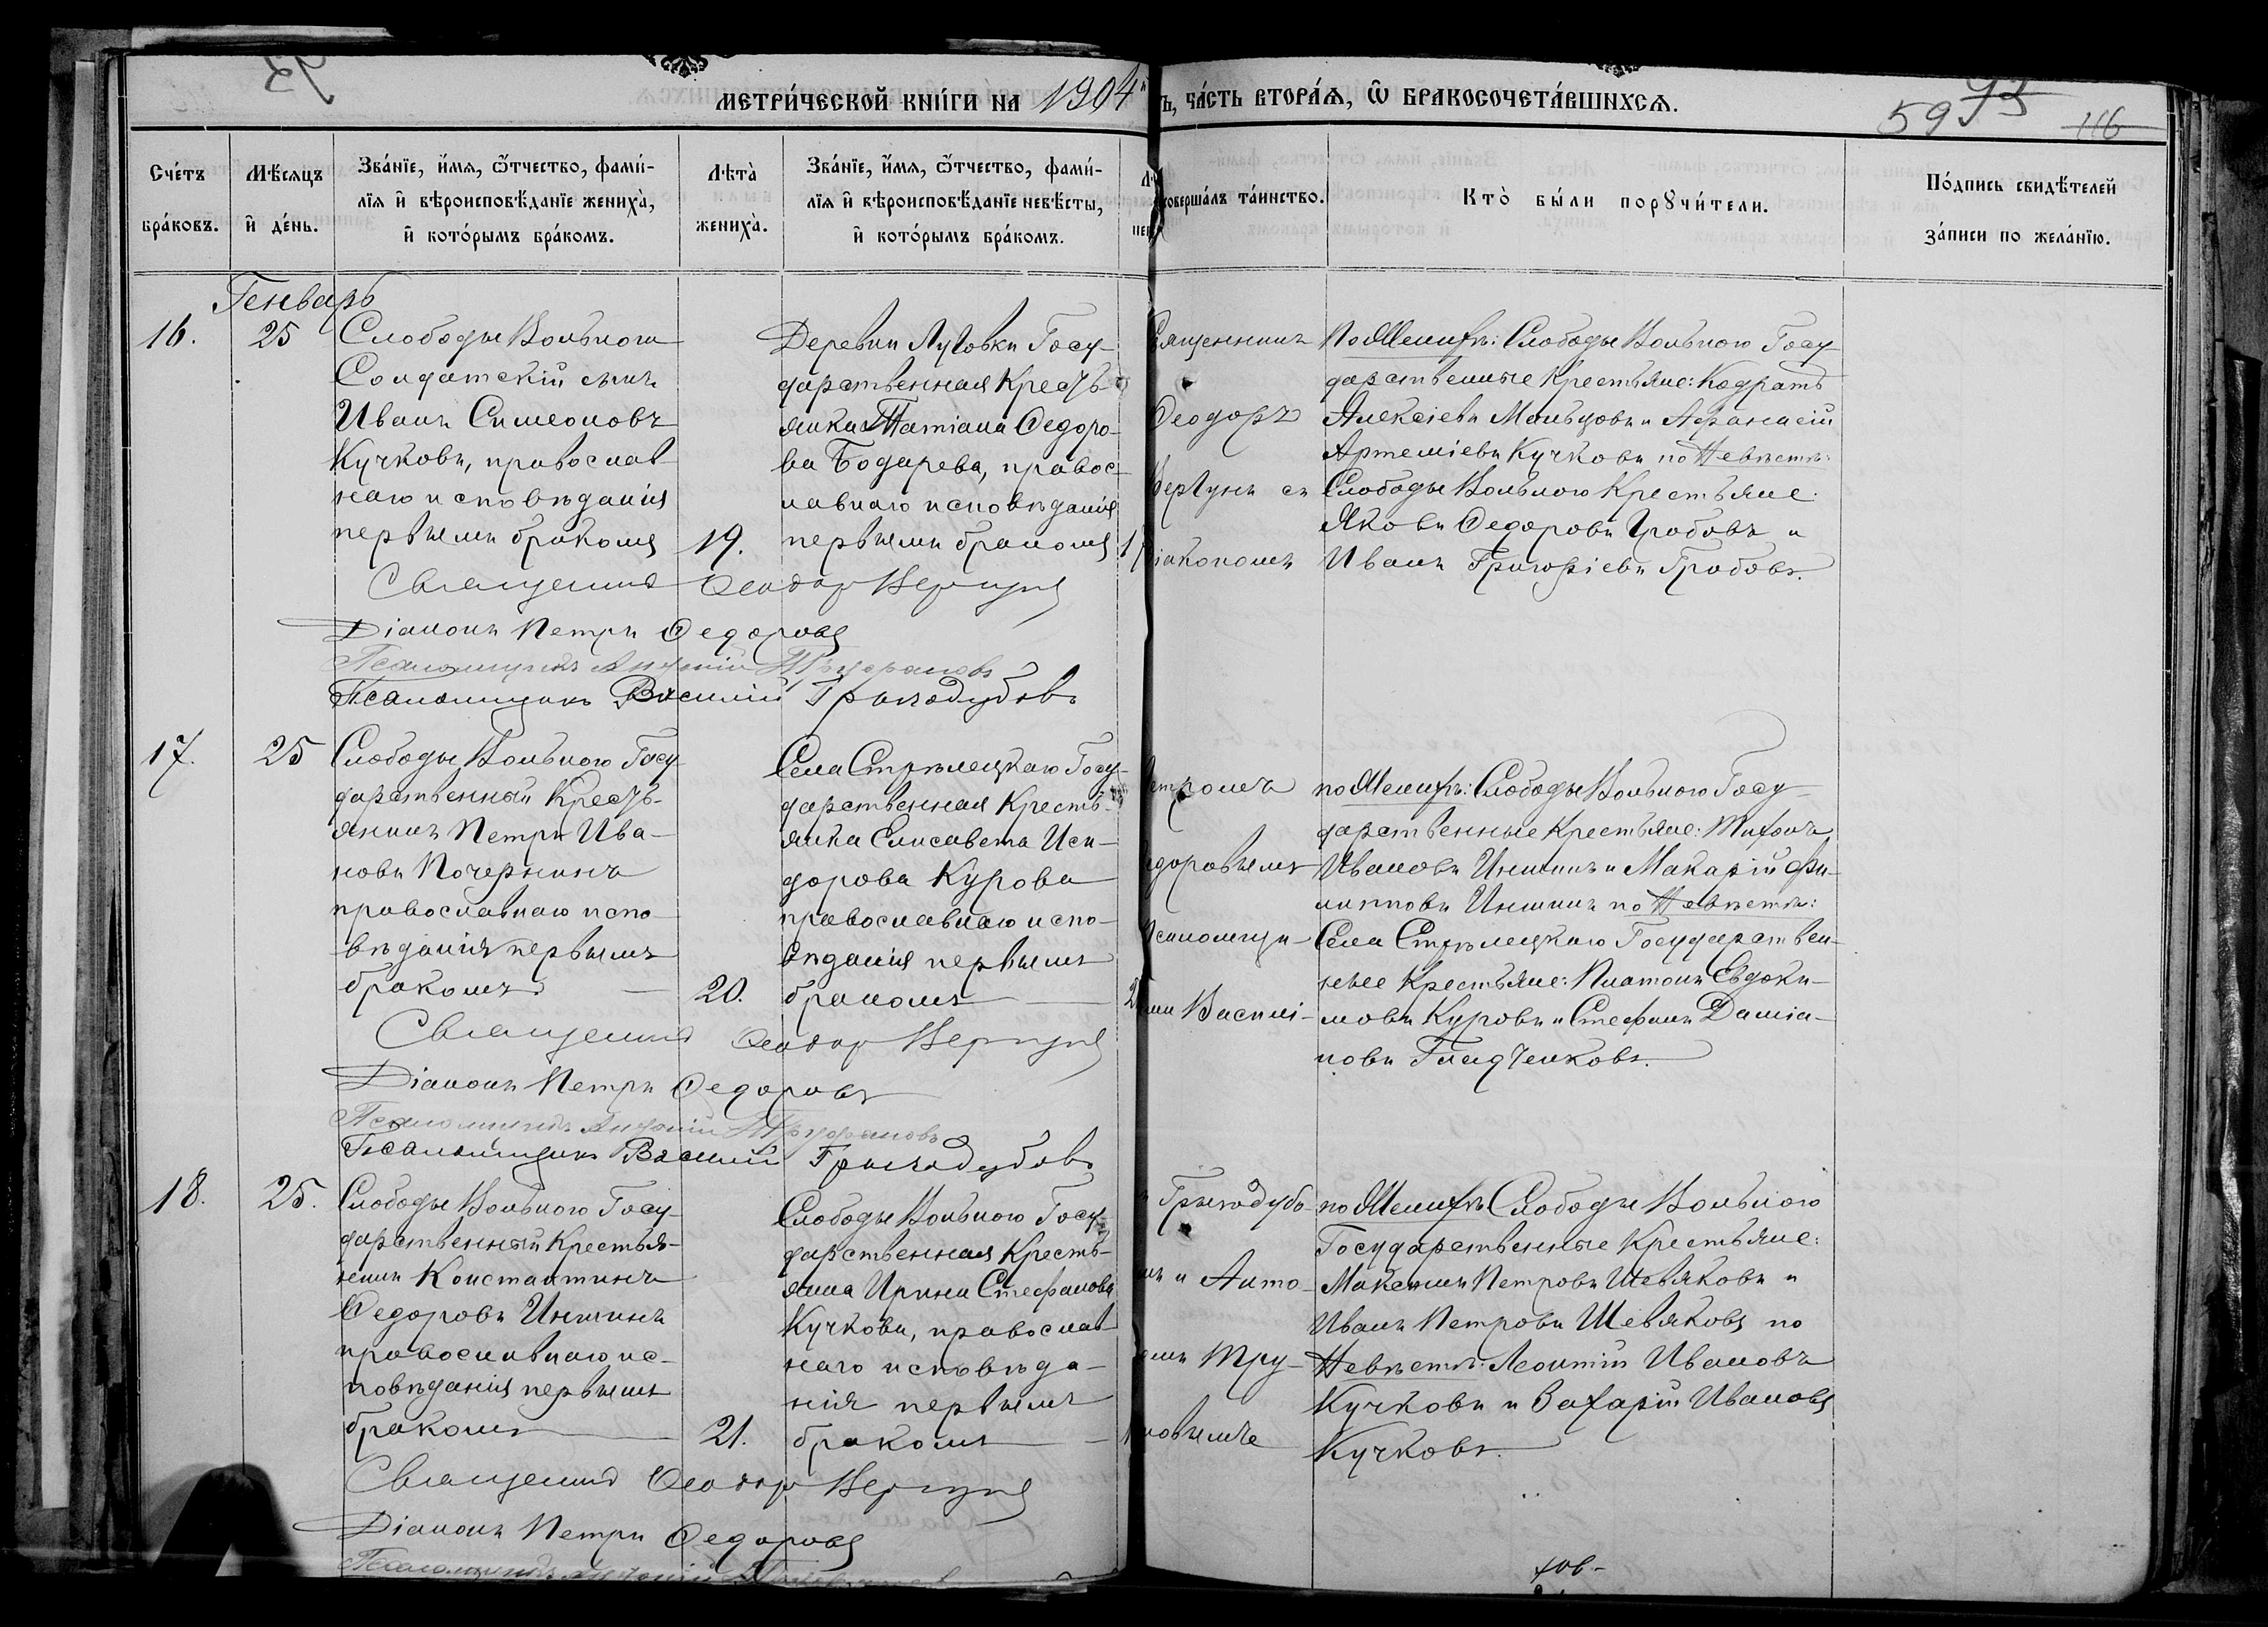 МЕТРИ́ЧЕСКОЙ КНИ́ГИ НА 1904
Ъ, ЧА́СТЬ ВТОРА́Ѧ, Ѿ БРАКОСОЧЕТА́ВШИХСѦ.
59
116
Сче́тъ бра́ковъ.
Мѣ́сяцъ и҆ де́нь.
Зва́нїе, и҆́мя, ѻ҆́тчество, фами́-
лїя и҆ вѣроисповѣ́данїе жениха̀,
и҆ кото́рымъ бра́комъ.
Лѣта̀ жениха̀.
Зва́нїе, и҆́мя, ѻ҆́тчество, фами́-
лїя и҆ вѣроисповѣ́данїе невѣ́сты,
и҆ кото́рымъ бра́комъ.
соверша́лъ та́инство.
Кто̀ бы́ли порꙋчи́тели.
По́дпись свидѣ́телей
за́писи по жела́нїю.
Генварь
16.
25
Слободы Вольного
Солдатскій сынъ
Иванъ Симеоновъ
Кучковъ, православ
наго исповѣданія
первымъ бракомъ
19.
Деревни Луговки Госу-
дарственная Кресть
янка Татіана Федоро-
ва Бодарева, правос
лавнаго исповѣданія
первымъ бракомъ
Священникъ
Феодоръ
Вергунъ съ
іакономъ
По Женихѣ: Слободы Вольного Госу-
дарственные Крестьяне: Кодратъ
Алексіевъ Мальцовъ и Афанасій
Артеміевъ Кучковъ по Невѣстѣ:
Слободы Вольного Крестьяне:
Яковъ Федоровъ Гробовъ и
Иванъ Григоріевъ Гробовъ.
Священникъ Феодор Вергунъ
Діаконъ Петръ Федоровъ
Псаломщикъ Антоній Труфановъ
Псаломщикъ Василій Грызодубовъ
17.
25
Слободы Вольного Госу
дарственный Кресть-
янинъ Петръ Ива-
новъ Почернинъ
православнаго испо-
вѣданія первымъ
бракомъ
20.
Села Стрѣлецкаго Госу-
дарственная Кресть-
янка Елисавета Иси-
дорова Курова
православнаго испо-
вѣданія первымъ
бракомъ
етромъ
едоровымъ
псаломщи-
ми Василі-
по Женихѣ: Слободы Вольного Госу-
дарственные Крестьяне: Тихонъ
Ивановъ Иншинъ и Макарій Фи-
липповъ Иншинъ по Невѣстѣ:
Села Стрѣлецкаго Государствен-
ные Крестьяне: Платонъ Евдоки-
мовъ Куровъ и Стефанъ Даміа-
новъ Гладченковъ.
Священникъ Феодор Вергунъ
Діаконъ Петръ Федоровъ
Псаломщикъ Антоній Труфановъ
Псаломщикъ Василій Грызодубовъ
18.
25.
Слободы Вольного Госу-
дарственный Крестья-
нинъ Константинъ
Федоровъ Иншинъ
православнаго ис-
повѣданія первымъ
бракомъ
21.
Слободы Вольного Госу-
дарственная Кресть-
янка Ирина Стефанова
Кучкова, православ
наго исповѣда-
нія первымъ
бракомъ
Грызодубо-
и Анто-
Тру-
новымъ
по Женихѣ Слободы Вольного
Государственные Крестьяне:
Максимъ Петровъ Шевяковъ и
Иванъ Петровъ Шевяковъ по
Невѣстѣ: Леонтій Ивановъ
Кучковъ и Захарій Ивановъ
Кучковъ.
Священникъ Феодор Вергунъ
Діаконъ Петръ Федоровъ
Псаломщикъ Антоній